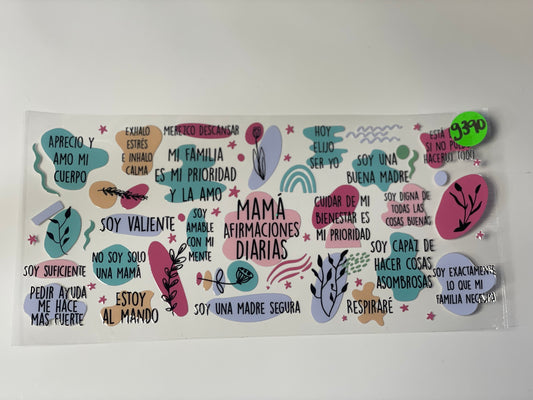 APRECIO Y
AMO MI
CUERPO
EXHALO
ESTRÉS
E INHALO
CALMA
MEREZCO DESCANSAR
MI FAMILIA
ES MI PRIORIDAD
Y LA AMO
HOY
ELIJO
SER YO
SOY UNA
BUENA MADRE
ESTÁ
SI NO
HACERLO
9390
SOY VALIENTE
SOY
AMABLE
CON MI
MENTE
MAMÁ
AFIRMACIONES
DIARIAS
CUIDAR DE MI
BIENESTAR ES
MI PRIORIDAD
SOY DIGNA DE
TODAS LAS
COSAS BUENAS
NO SOY SOLO
UNA MAMÁ
SOY CAPAZ DE
HACER COSAS
ASOMBROSAS
SOY SUFICIENTE
PEDIR AYUDA
ME HACE
MAS FUERTE
ESTOY
AL MANDO
SOY UNA MADRE SEGURA
RESPIRARE
SOY EXACTAMENTE
LO QUE MI
FAMILIA